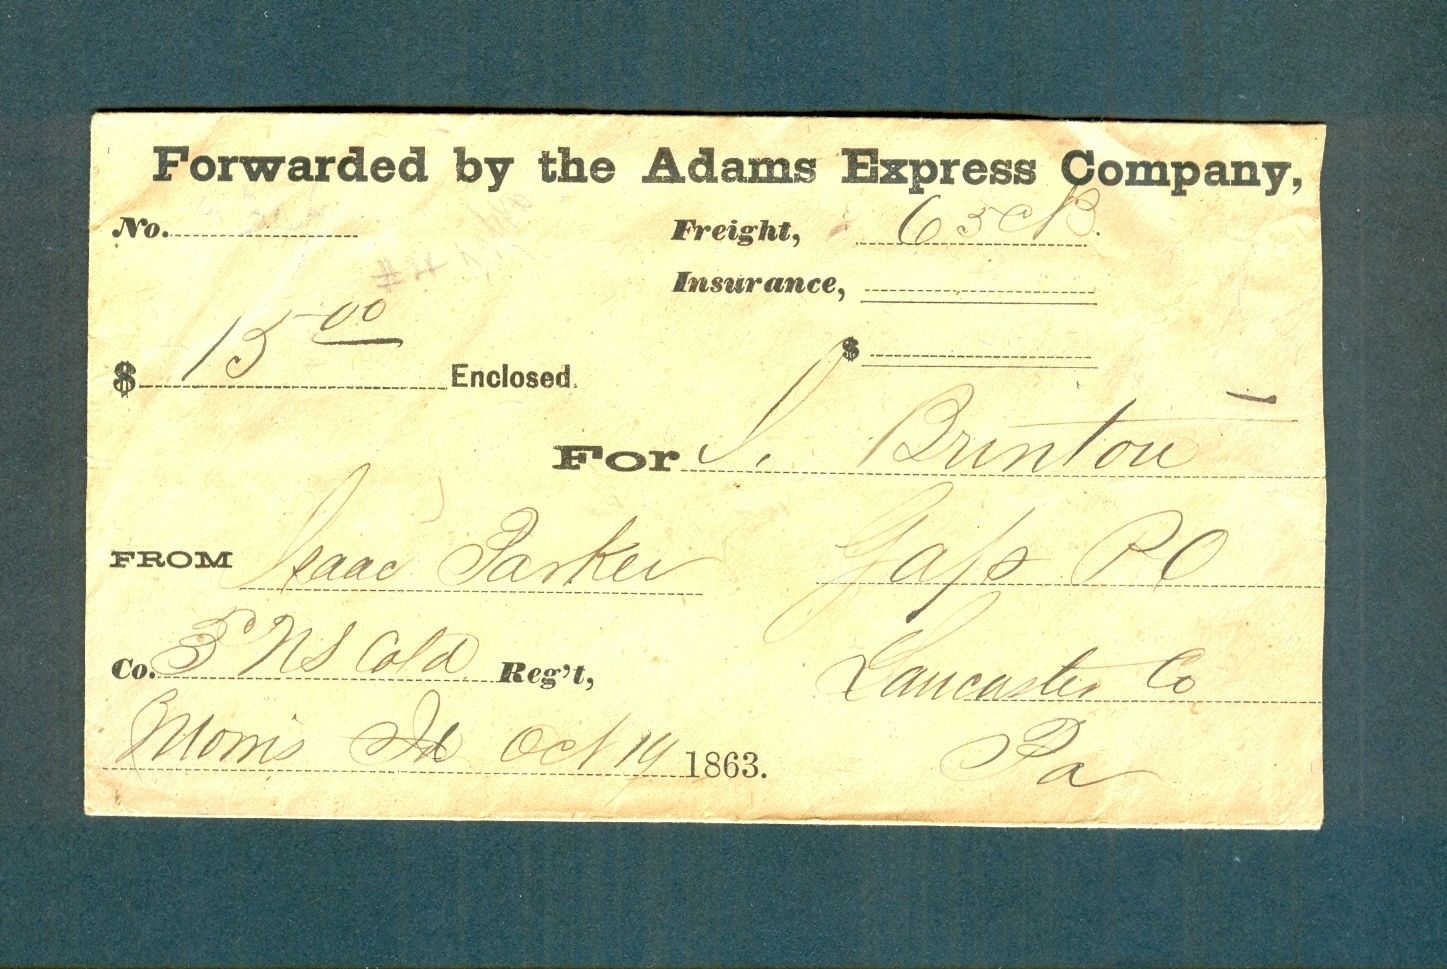 Forwarded by the Adams Express Company,
No.
Freight, 65
Insurance,
$ 15 00 Enclosed.
$
For I. Brinton
FROM Isaac Parker
Gap PO
Co. 3 US Cold Reg't,
Lancaster Co
Morris Id Oct 19 1863.
Pa